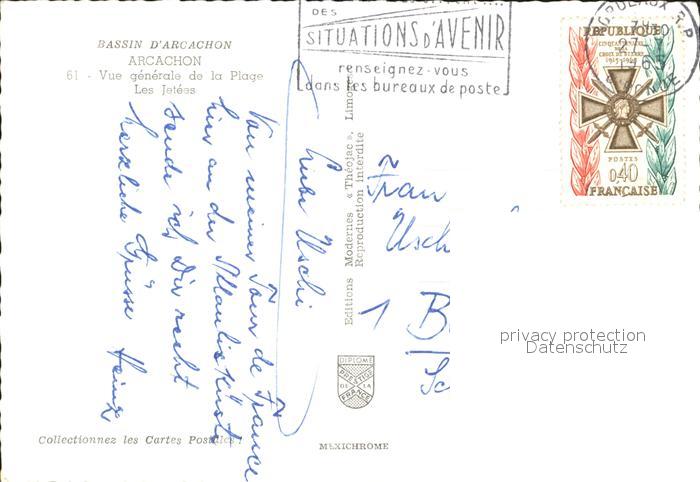 BASSIN D'ARCACHON
ARCACHON
61 - Vue générale de la Plage
Les Jetées
DES
SITUATIONS D'AVENIR
renseignez-vous
dans les bureaux de poste
BORDEAUX R.P.
GIRONDE
RÉPUBLIQUE
CINQUANTENAIRE
DE LA
CROIX DE GUERRE
1915-1965
POSTES
0,40
FRANÇAISE
Liebe Uschi
Von meiner Tour de France
hier an der Atlantikküste
sende ich Dir recht
herzliche Grüsse Heinz
Editions Modernes « Théojac », Limoges
Reproduction interdite
Frau
Usch
1 B
DIPLOME
PRESTIGE
DE LA
FRANCE
privacy protection
Datenschutz
Collectionnez les Cartes Postales !
MEXICHROME